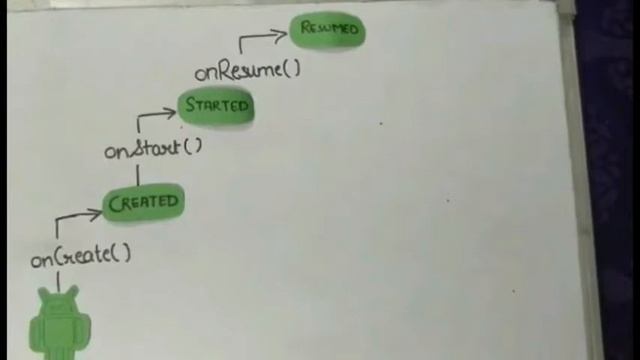 RESUMED
onResume()
STARTED
onStart()
CREATED
onCreate()